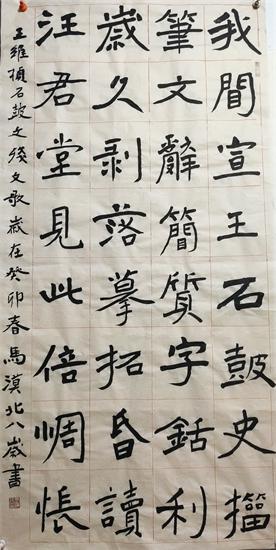 我聞宣王石鼓史籀
筆文辭簡質字銛利
歲久剥落摹拓昏讀
汪君堂見此倍惆悵
王維楨石鼓文文歌歲在癸卯春馬漠北八歲書